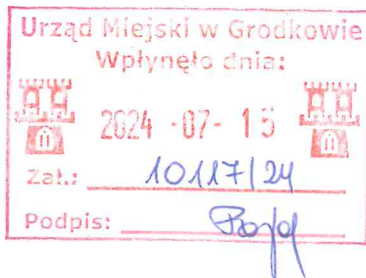 Urząd Miejski w Grodkowie
Wpłynęło dnia:
2024 -07- 15
Zał.: 10117/24
Podpis: